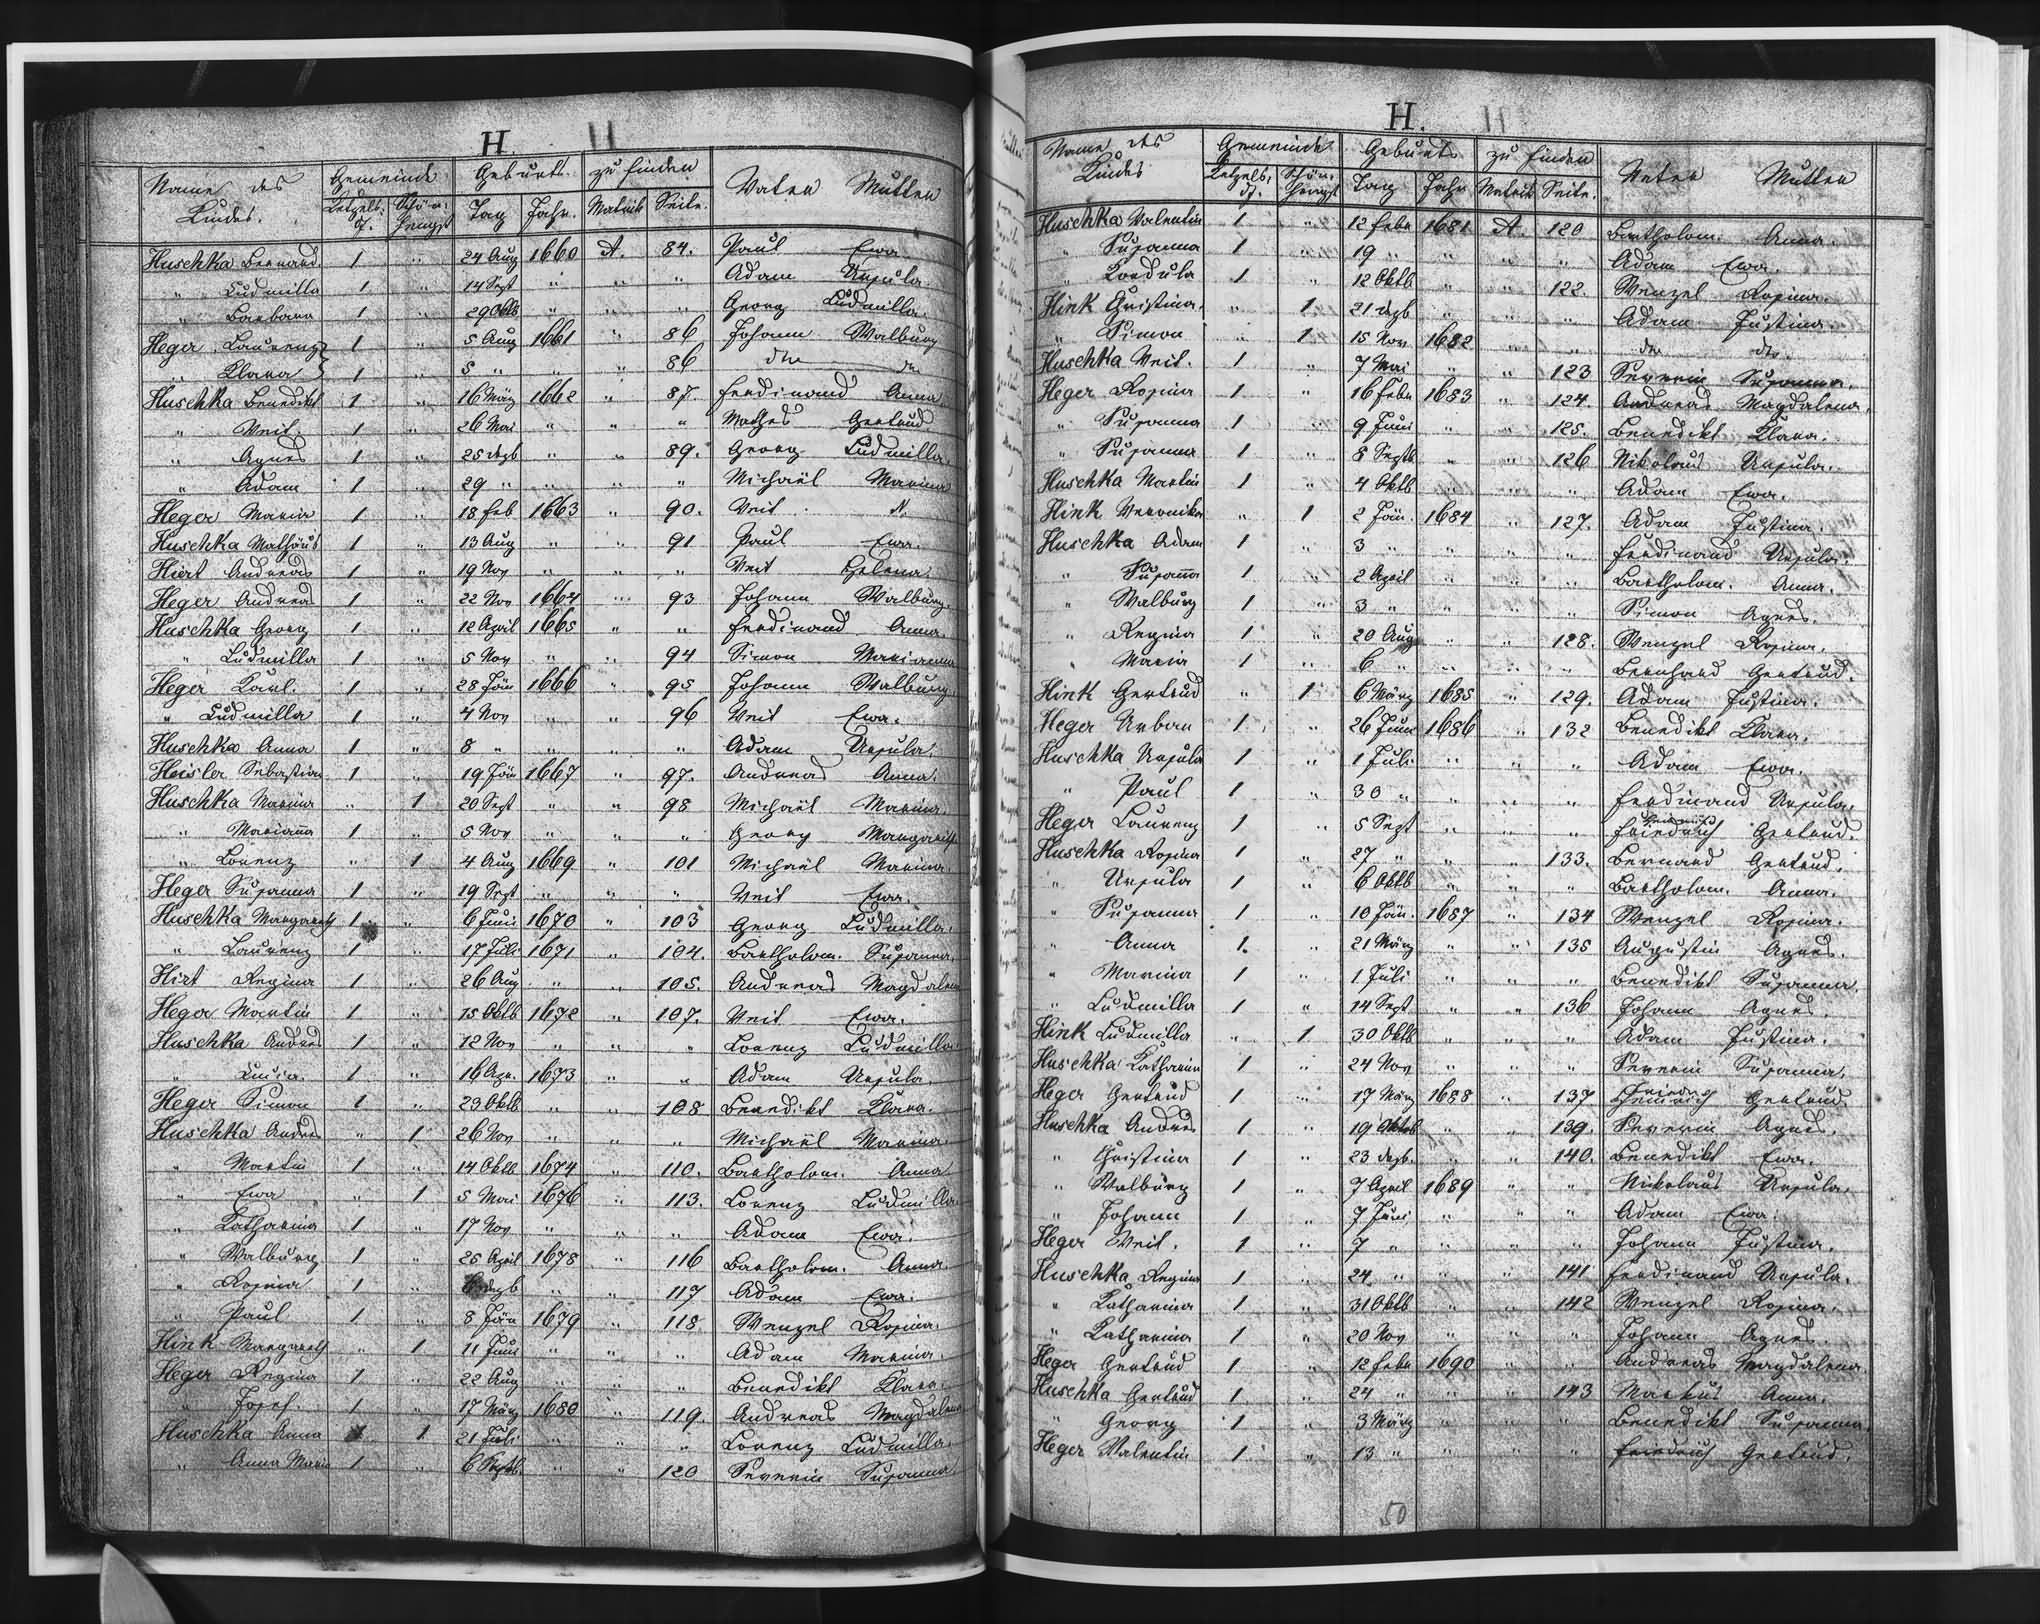 H.
Name des Kindes. Gemeinde Geburts. zu finden Vater Mutter
Letzels. df. Schön- hengst Tag Jahr. Matrik Seite.
Huschka Bernard. 1 " 24 Aug 1660 A. 84. Paul Ewa
" Ludmilla 1 " 14 Sept " " " Adam Ursula.
" Barbara 1 " 29 Oktb " " " Georg Ludmilla.
Heger Laurenz 1 " 5 Aug 1661 " 86 Johann Walburg
" Klara 1 " 5 " " " 86 dto do
Huschka Benedikt 1 " 16 März 1662 " 87. Ferdinand Anna
" Veit 1 " 26 Mai " " " Mathes Gertrud
" Agnes 1 " 25 Dezb " " 89. Georg Ludmilla.
" Adam 1 " 29 " " " " Michaël Marina
Heger Maria 1 " 18 Feb 1663 " 90. Veit N.
Huschka Mathäus 1 " 13 Aug " " 91 Paul Ewa.
Hiert Andreas 1 " 19 Nov " " " Veit Helena.
Heger Andreas 1 " 22 Nov 1664 " 93 Johann Walburg.
Huschka Georg 1 " 12 April 1665 " " Ferdinand Anna.
" Ludmilla 1 " 5 Nov " " 94 Simon Marianna
Heger Karl. 1 " 28 Jän 1666 " 95 Johann Walburg
" Ludmilla 1 " 4 Nov " " 96 Veit Ewa.
Huschka Anna 1 " 8 " " " " Adam Ursula.
Heisler Sebastian 1 " 19 Jän 1667 " 97. Andreas Anna.
Huschka Marina " 1 20 Sept " " 98 Michaël Marina.
" Marianna 1 " 5 Nov " " " Georg Margareth
" Lorenz " 1 4 Aug 1669 " 101 Michaël Marina
Heger Susanna 1 " 19 Sept " " " Veit Ewa.
Huschka Margareth 1 " 6 Juni 1670 " 103 Georg Ludmilla.
" Laurenz 1 " 17 Juli 1671 " 104. Bartholom. Susanna.
Hirt Regina 1 " 26 Aug " " 105. Andreas Magdalena
Heger Martin 1 " 15 Oktb 1672 " 107. Veit Ewa.
Huschka Andres 1 " 12 Nov " " " Lorenz Ludmilla
" Lucia. 1 " 16 Apr. 1673 " " Adam Ursula.
Heger Simon 1 " 23 Oktb " " 108 Benedikt Klara.
Huschka Andres " 1 26 Nov " " " Michaël Marina.
" Martin 1 " 14 Oktb 1674 " 110. Bartholom. Anna
" Ewa " 1 5 Mai 1676 " 113. Lorenz Ludmilla
" Katharina 1 " 17 Nov " " " Adam Ewa.
" Walburg 1 " 25 April 1678 " 116 Bartholom. Anna
" Rosina 1 " Dezb " " 117 Adam Ewa.
" Paul 1 " 8 Jän 1679 " 118. Wenzel Rosina.
Hink Margareth " 1 11 Juni " " " Adam Marina.
Heger Regina 1 " 22 Aug " " " Benedikt Klara.
" Josef. 1 " 17 März 1680 " 119. Andreas Magdalena
Huschka Anna 1 21 Juli " " " Lorenz Ludmilla.
" Anna Maria 1 " 6 Septb. " " 120 Severin Susanna
H.
Name des Kindes Gemeinde Geburts zu finden Vater Mutter
Letzels. df. Schön- hengst Tag Jahr Matrik Seite.
Huschka Valentin 1 " 12 Febr 1681 A. 120 Bartholom. Anna.
" Susanna 1 " 19 " " " " Adam Ewa.
" Kordula 1 " 12 Oktb " " 122. Wenzel Rosina.
Hink Christina. " 1 21 Dezb " " " Adam Justina.
" Simon " 1 15 Nov 1682 " " do do.
Huschka Veit. 1 " 7 Mai " " 123 Severin Susanna.
Heger Rosina 1 " 16 Febr 1683 " 124. Andreas Magdalena.
" Susanna 1 " 9 Juni " " 125. Benedikt Klara.
" Susanna 1 " 8 Septb " " 126 Nikolaus Ursula.
Huschka Martin 1 " 4 Oktb " " " Adam Ewa.
Hink Veronika " 1 2 Jän. 1684 " 127. Adam Justina.
Huschka Adam 1 " 3 " " " " Ferdinand Ursula.
" Susanna 1 " 2 April " " " Bartholom. Anna.
" Walburg 1 " 3 " " " " Simon Agnes.
" Regina 1 " 20 Aug " " 128. Wenzel Rosina.
" Maria 1 " 6 " " " " Bernhard Gertrud.
Hink Gertrud " 1 6 März 1685 " 129. Adam Justina.
Heger Urban 1 " 26 Juni 1686 " 132 Benedikt Klara.
Huschka Ursula 1 " 1 Juli " " " Adam Ewa.
" Paul 1 " 30 " " " " Ferdinand Ursula.
Heger Laurenz 1 " 5 Sept " " " Friedrich Heinrich Gertrud.
Huschka Rosina 1 " 27 " " " 133. Bernard Gertrud.
" Ursula 1 " 6 Oktb " " " Bartholom. Anna.
" Susanna 1 " 10 Jän. 1687 " 134 Wenzel Rosina.
" Anna 1. " 21 März " " 135 Augustin Agnes.
" Marina 1 " 1 Juli " " " Benedikt Susanna.
" Ludmilla 1 " 14 Sept " " 136 Johann Agnes.
Hink Ludmilla " 1 30 Oktb " " " Adam Justina.
Huschka Katharina 1 " 24 Nov " " " Severin Susanna.
Heger Gertrud 1 " 17 März 1688 " 137 Friedr Heinrich Gertrud.
Huschka Andres 1 " 19 Oktob " " 139. Severin Agnes.
" Christina 1 " 23 Dezb. " " 140. Benedikt Ewa.
" Walburg 1 " 7 April 1689 " " Nikolaus Ursula.
" Johann 1 " 7 Juni " " " Adam Ewa.
Heger Veit. 1 " 7 " " " " Johann Justina.
Huschka Regina 1 " 24 " " " 141 Ferdinand Ursula.
" Katharina 1 " 31 Oktb " " 142 Wenzel Rosina.
" Katharina 1 " 20 Nov " " " Johann Agnes.
Heger Gertrud 1 " 12 Febr 1690 " " Andreas Magdalena
Huschka Gertrud 1 " 24 " " " 143 Markus Anna.
" Georg 1 " 3 März " " " Benedikt Susanna
Heger Valentin 1 " 13 " " " " Friedrich Gertrud.
50